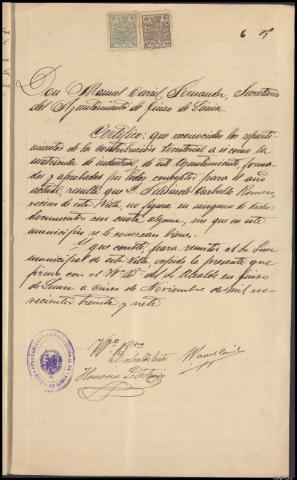 6
Don Manuel David Fernandez, Secretario
del Ayuntamiento de Ginzo de Limia.
Certifico: que reconocidos los reparti-
mientos de la contribución territorial asi como la
matricula de industrial, de este Ayuntamiento, forma-
dos y aprobados por todos conceptos para el año
actual, resulta que D. Carballo Romero,
vecino de esta Villa, no figura en ninguno de dichos
documentos con cuota alguna, ni que en este
municipio se le conozcan bienes.
Y que conste, para remitir al Sr. Juez
municipal de esta Villa, expido la presente que
firmo con el Vº Bº del Sr. Alcalde en Ginzo
de Limia a cinco de Noviembre de mil no-
vecientos treinta y siete
Vº Bº
El Alcalde
Manuel David